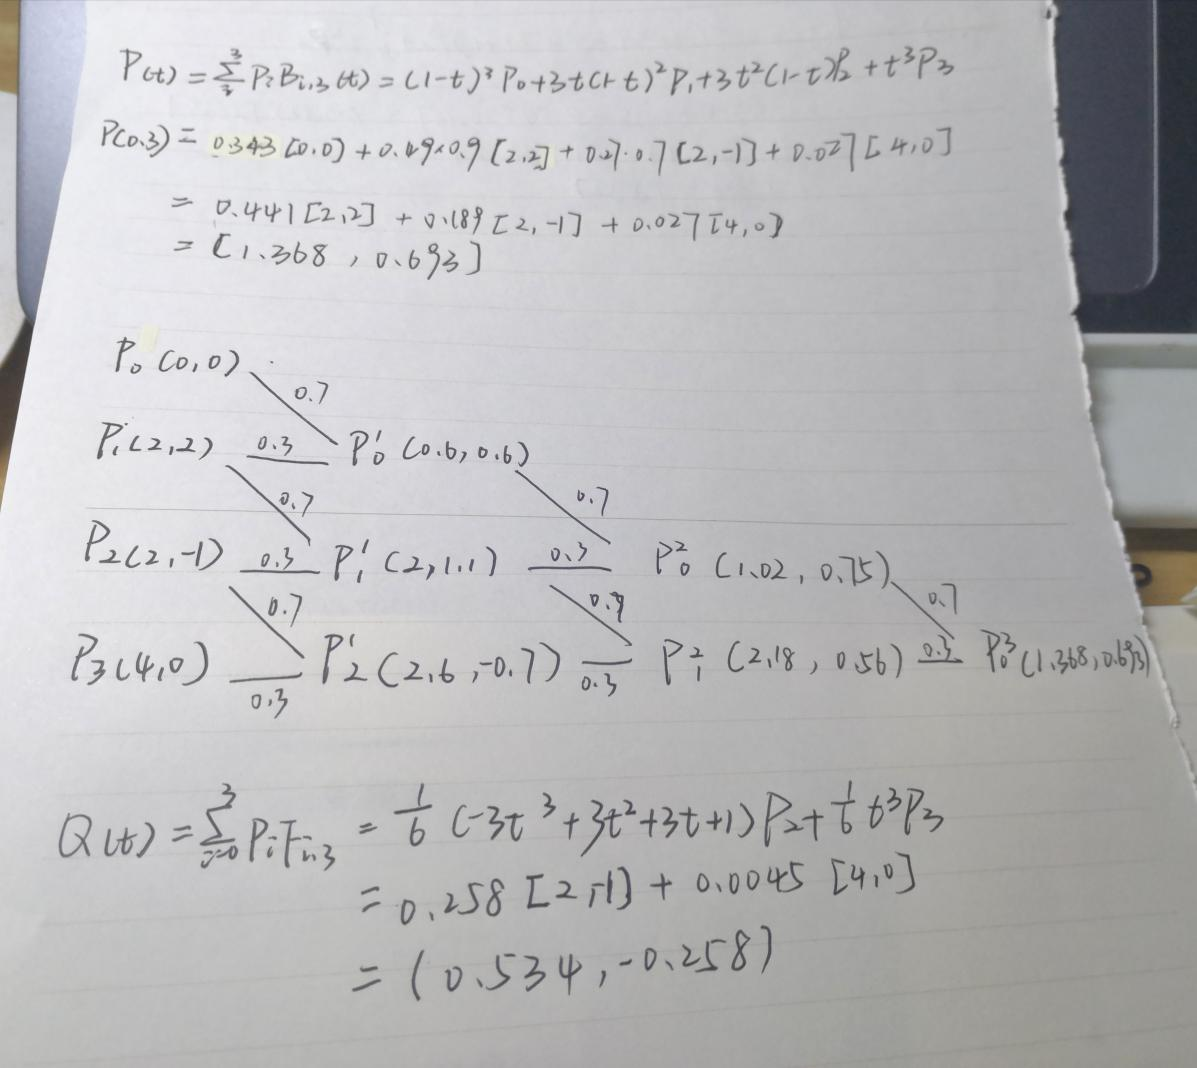 P(t) = Σ³ᵢ PᵢBᵢ,₃(t) = (1-t)³P₀+3t(1-t)²P₁+3t²(1-t)P₂+t³P₃
P(0.3) = 0.343[0,0] + 0.49×0.9[2,2] + 0.27·0.7[2,-1] + 0.027[4,0]
= 0.441[2,2] + 0.189[2,-1] + 0.027[4,0]
= [1.368, 0.693]
P₀(0,0)
0.7
P₁(2,2) 0.3 P₀¹(0.6,0.6)
0.7 0.7
P₂(2,-1) 0.3 P₁¹(2,1.1) 0.3 P₀²(1.02, 0.75)
0.7 0.7 0.7
P₃(4,0) 0.3 P₂¹(2.6,-0.7) 0.3 P₁²(2.18, 0.56) 0.3 P₀³(1.368,0.693)
Q(t) = Σ³ᵢ₌₀ PᵢFᵢ,₃ = 1/6 (-3t³+3t²+3t+1)P₂+1/6 t³P₃
= 0.258[2,-1] + 0.0045[4,0]
= (0.534,-0.258)